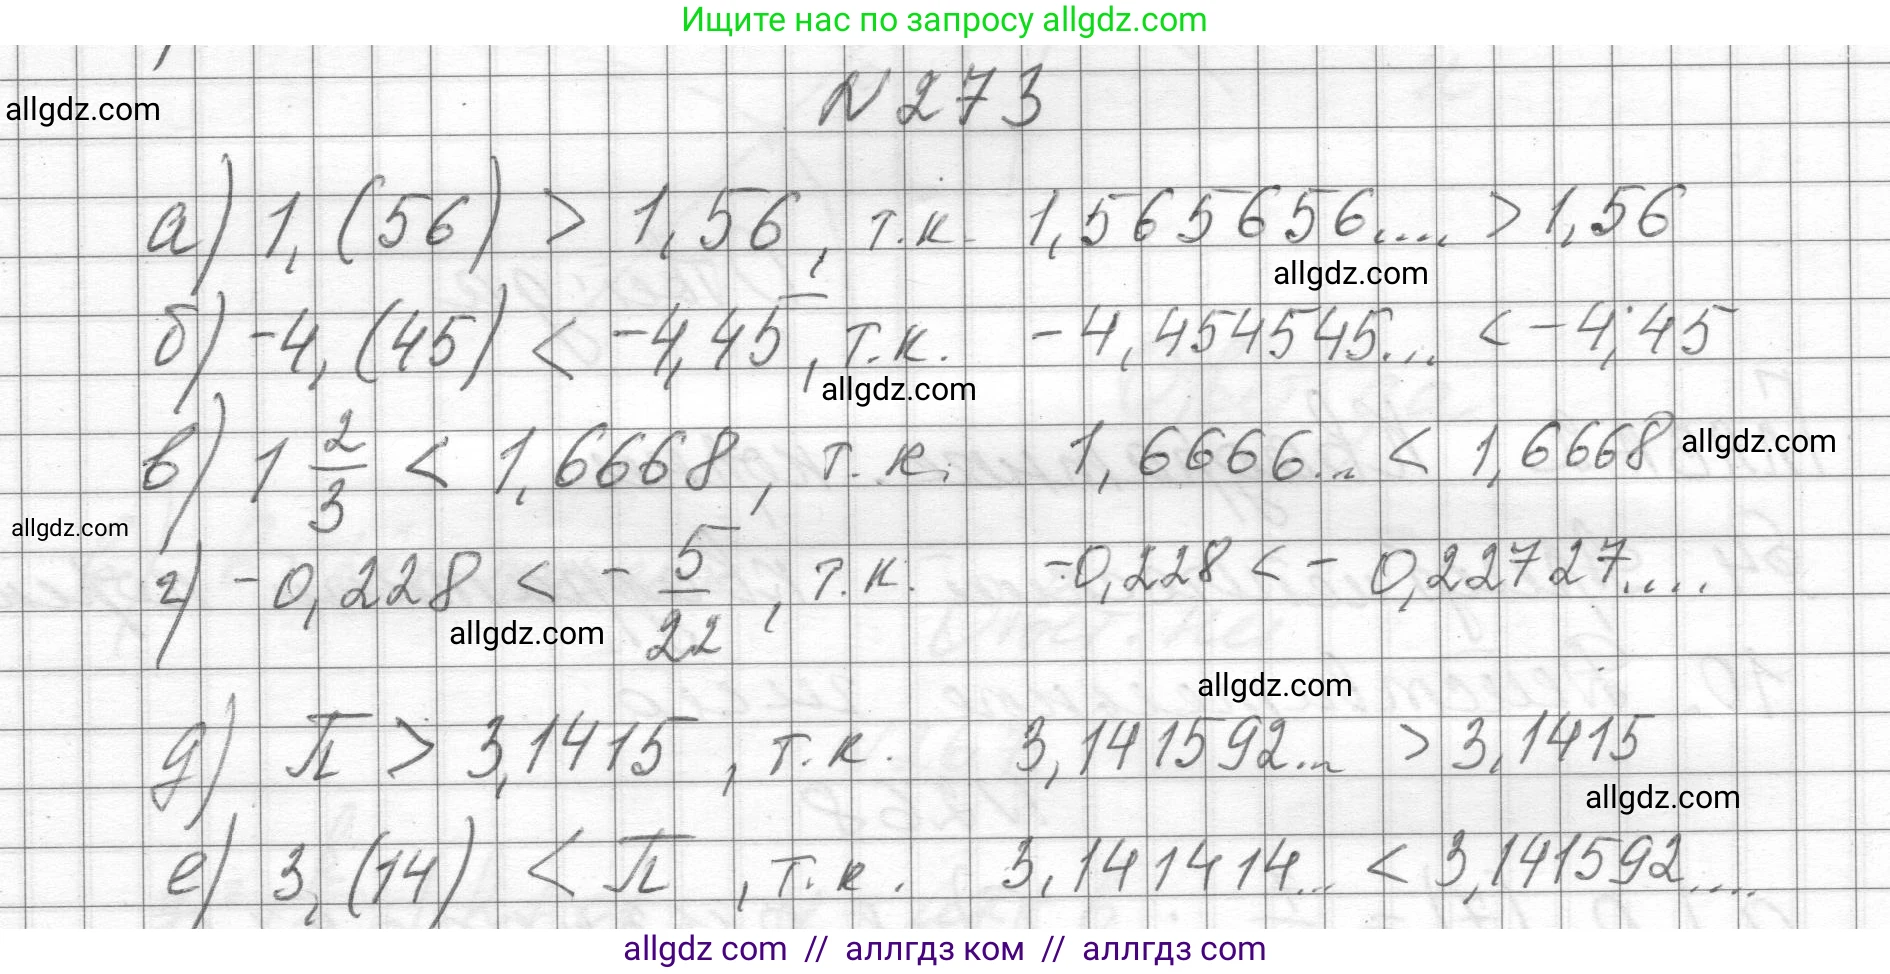 Ищите нас по запросу allgdz.com
N 273
allgdz.com
а) 1,(56) > 1,56, т.к. 1,565656.... > 1,56
allgdz.com
б) -4,(45) < -4,45, т.к. -4,454545... < -4,45
allgdz.com
в) 1 2/3 < 1,6668, т.к. 1,6666... < 1,6668
allgdz.com
allgdz.com
г) -0,228 < - 5/22, т.к. -0,228 < - 0,22727....
allgdz.com
allgdz.com
д) π > 3,1415, т.к. 3,141592... > 3,1415
allgdz.com
е) 3,(14) < π, т.к. 3,141414... < 3,141592....
allgdz com // аллгдз ком // аллгдз com